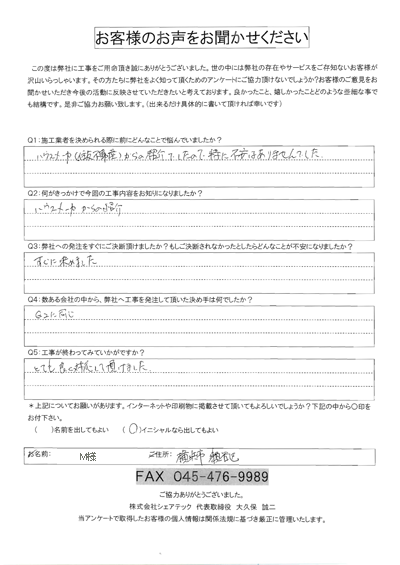 お客様のお声をお聞かせください
この度は弊社に工事をご用命頂き誠にありがとうございました。世の中には弊社の存在やサービスをご存知ないお客様が
沢山いらっしゃいます。その方たちに弊社をよく知って頂くためのアンケートにご協力頂けないでしょうか？お客様のご意見をお
聞かせいただき今後の活動に反映させていただきたいと考えております。良かったこと、嬉しかったことどのような些細な事で
も結構です。是非ご協力お願い致します。（出来るだけ具体的に書いて頂ければ幸いです）
Q1:施工業者を決められる際に前にどんなことで悩んでいましたか？
からの紹介でしたので特に不安はありませんでした
Q2:何がきっかけで今回の工事内容をお知りになりましたか？
ハウスメーカーからの紹介
Q3:弊社への発注をすぐにご決断頂けましたか？もしご決断されなかったとしたらどんなことが不安になりましたか？
すぐに決めました
Q4:数ある会社の中から、弊社へ工事を発注して頂いた決め手は何でしたか？
Q2に同じ
Q5:工事が終わってみていかがですか？
とても良く対応して頂けました
＊上記についてお願いがあります。インターネットや印刷物に掲載させて頂いてもよろしいでしょうか？下記の中から〇印を
お付下さい。
（　）名前を出してもよい　（〇）イニシャルなら出してもよい
お名前：　M様　ご住所：
FAX 045-476-9989
ご協力ありがとうございました。
株式会社シェアテック 代表取締役 大久保 誠二
当アンケートで取得したお客様の個人情報は関係法規に基づき厳正に管理いたします。